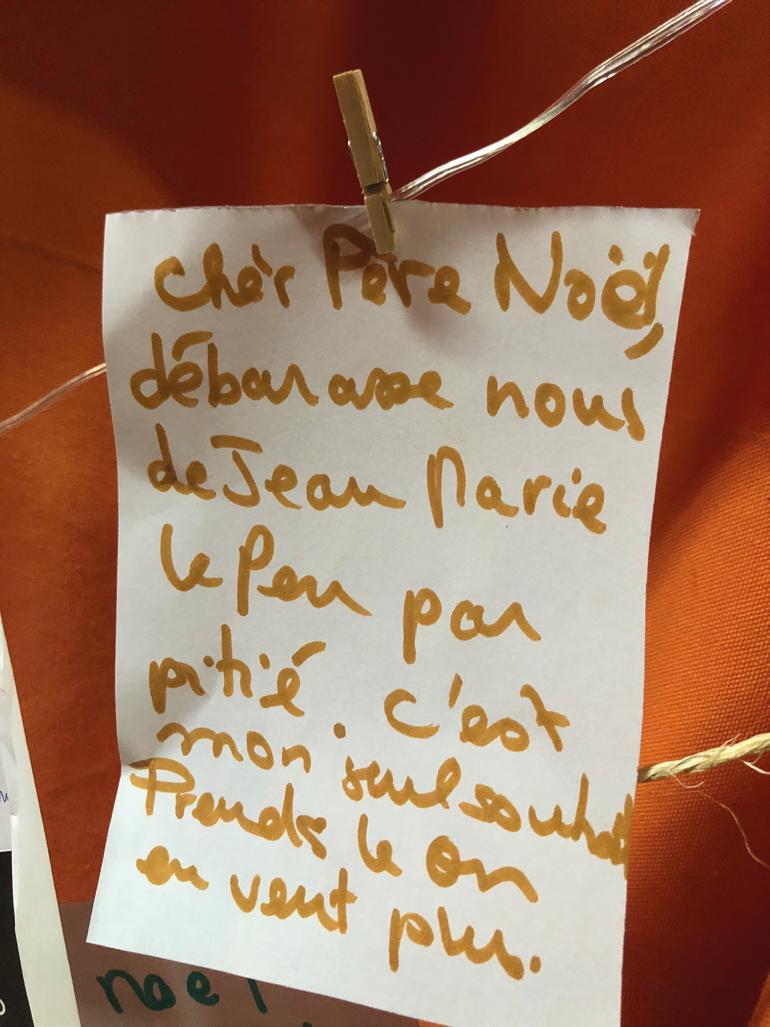 chèr Père Noël,
débarasse nous
de Jean Marie
le Pen par
pitié. c'est
mon seul souhait
Prends le on
en veut plus.
noel